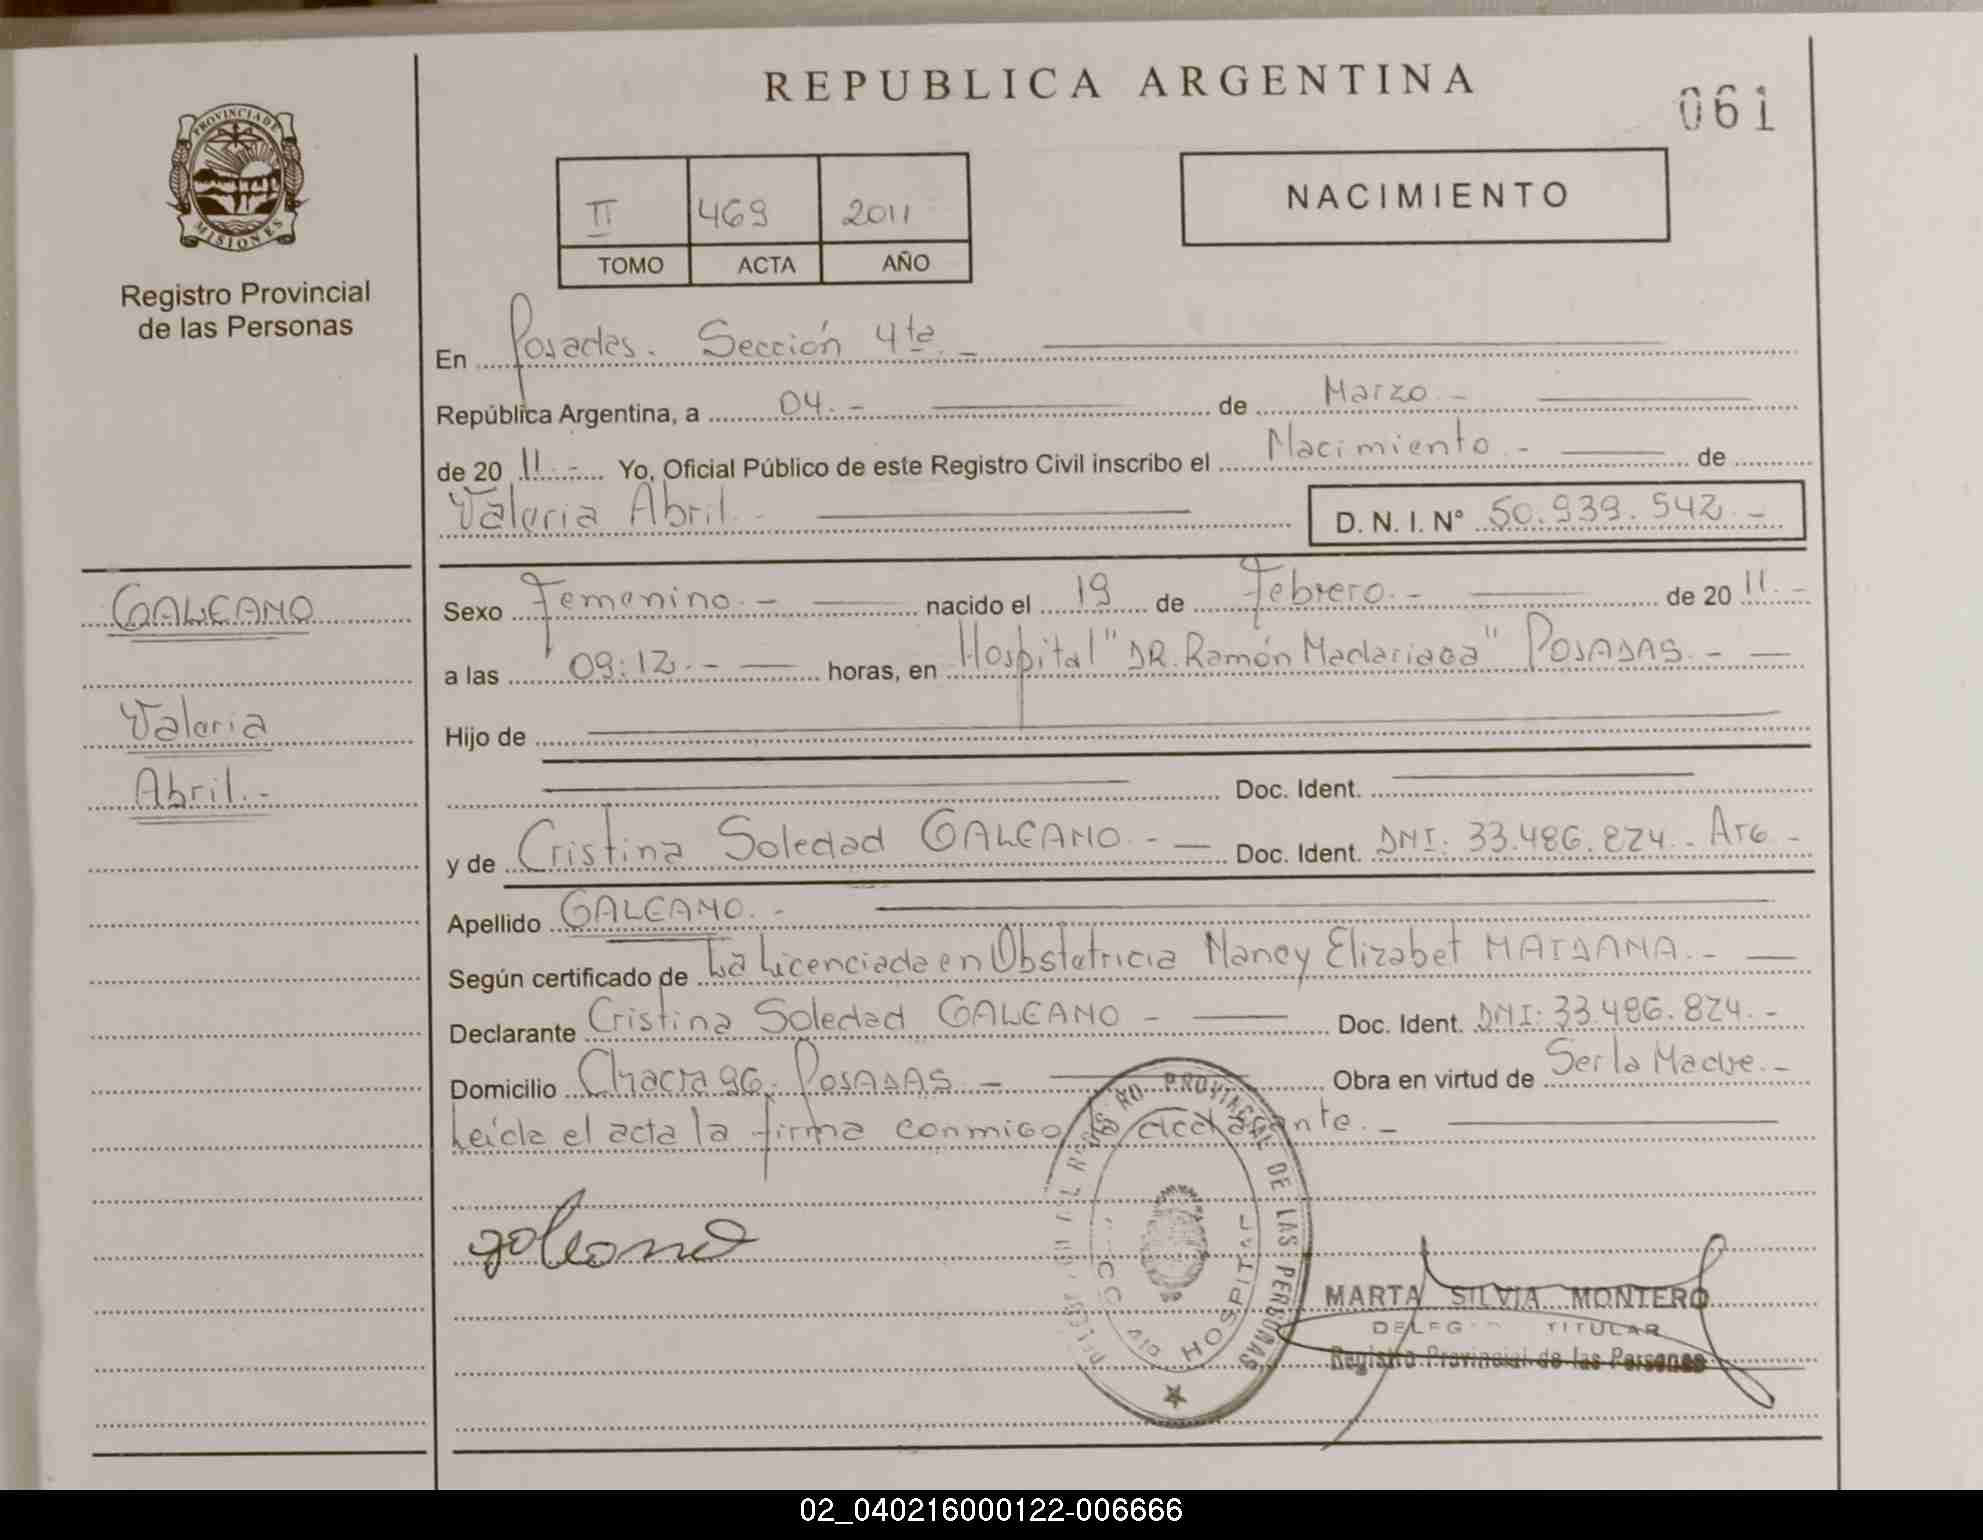 REPUBLICA ARGENTINA
061
PROVINCIA DE
MISIONES
Registro Provincial
de las Personas
II 469 2011
TOMO ACTA AÑO
NACIMIENTO
En Posadas. Sección 4ta.-
República Argentina, a 04.- de Marzo.-
de 20 11.- Yo, Oficial Público de este Registro Civil inscribo el Nacimiento.- de
Valeria Abril.- D. N. I. N° 50.939.542.-
GALEANO
Valeria
Abril.-
Sexo Femenino.- nacido el 19 de Febrero.- de 20 11.-
a las 09:12.- horas, en Hospital "DR. Ramón Madariaga" POSADAS.-
Hijo de
Doc. Ident.
y de Cristina Soledad GALEANO.- Doc. Ident. DNI: 33.486.824.- Arg-
Apellido GALEANO.-
Según certificado de La Licenciada en Obstetricia Nancy Elizabet MAIDANA.-
Declarante Cristina Soledad GALEANO - Doc. Ident. DNI: 33.486.824.-
Domicilio Chacra 96. POSADAS - Obra en virtud de Ser la Madre.-
Leída el acta la firma conmigo la declarante.-
galeano
PROVINCIAL DE LAS PERSONAS
HOSPITAL
MARTA SILVIA MONTERO
TITULAR
Registro Provincial de las Personas
02_040216000122-006666